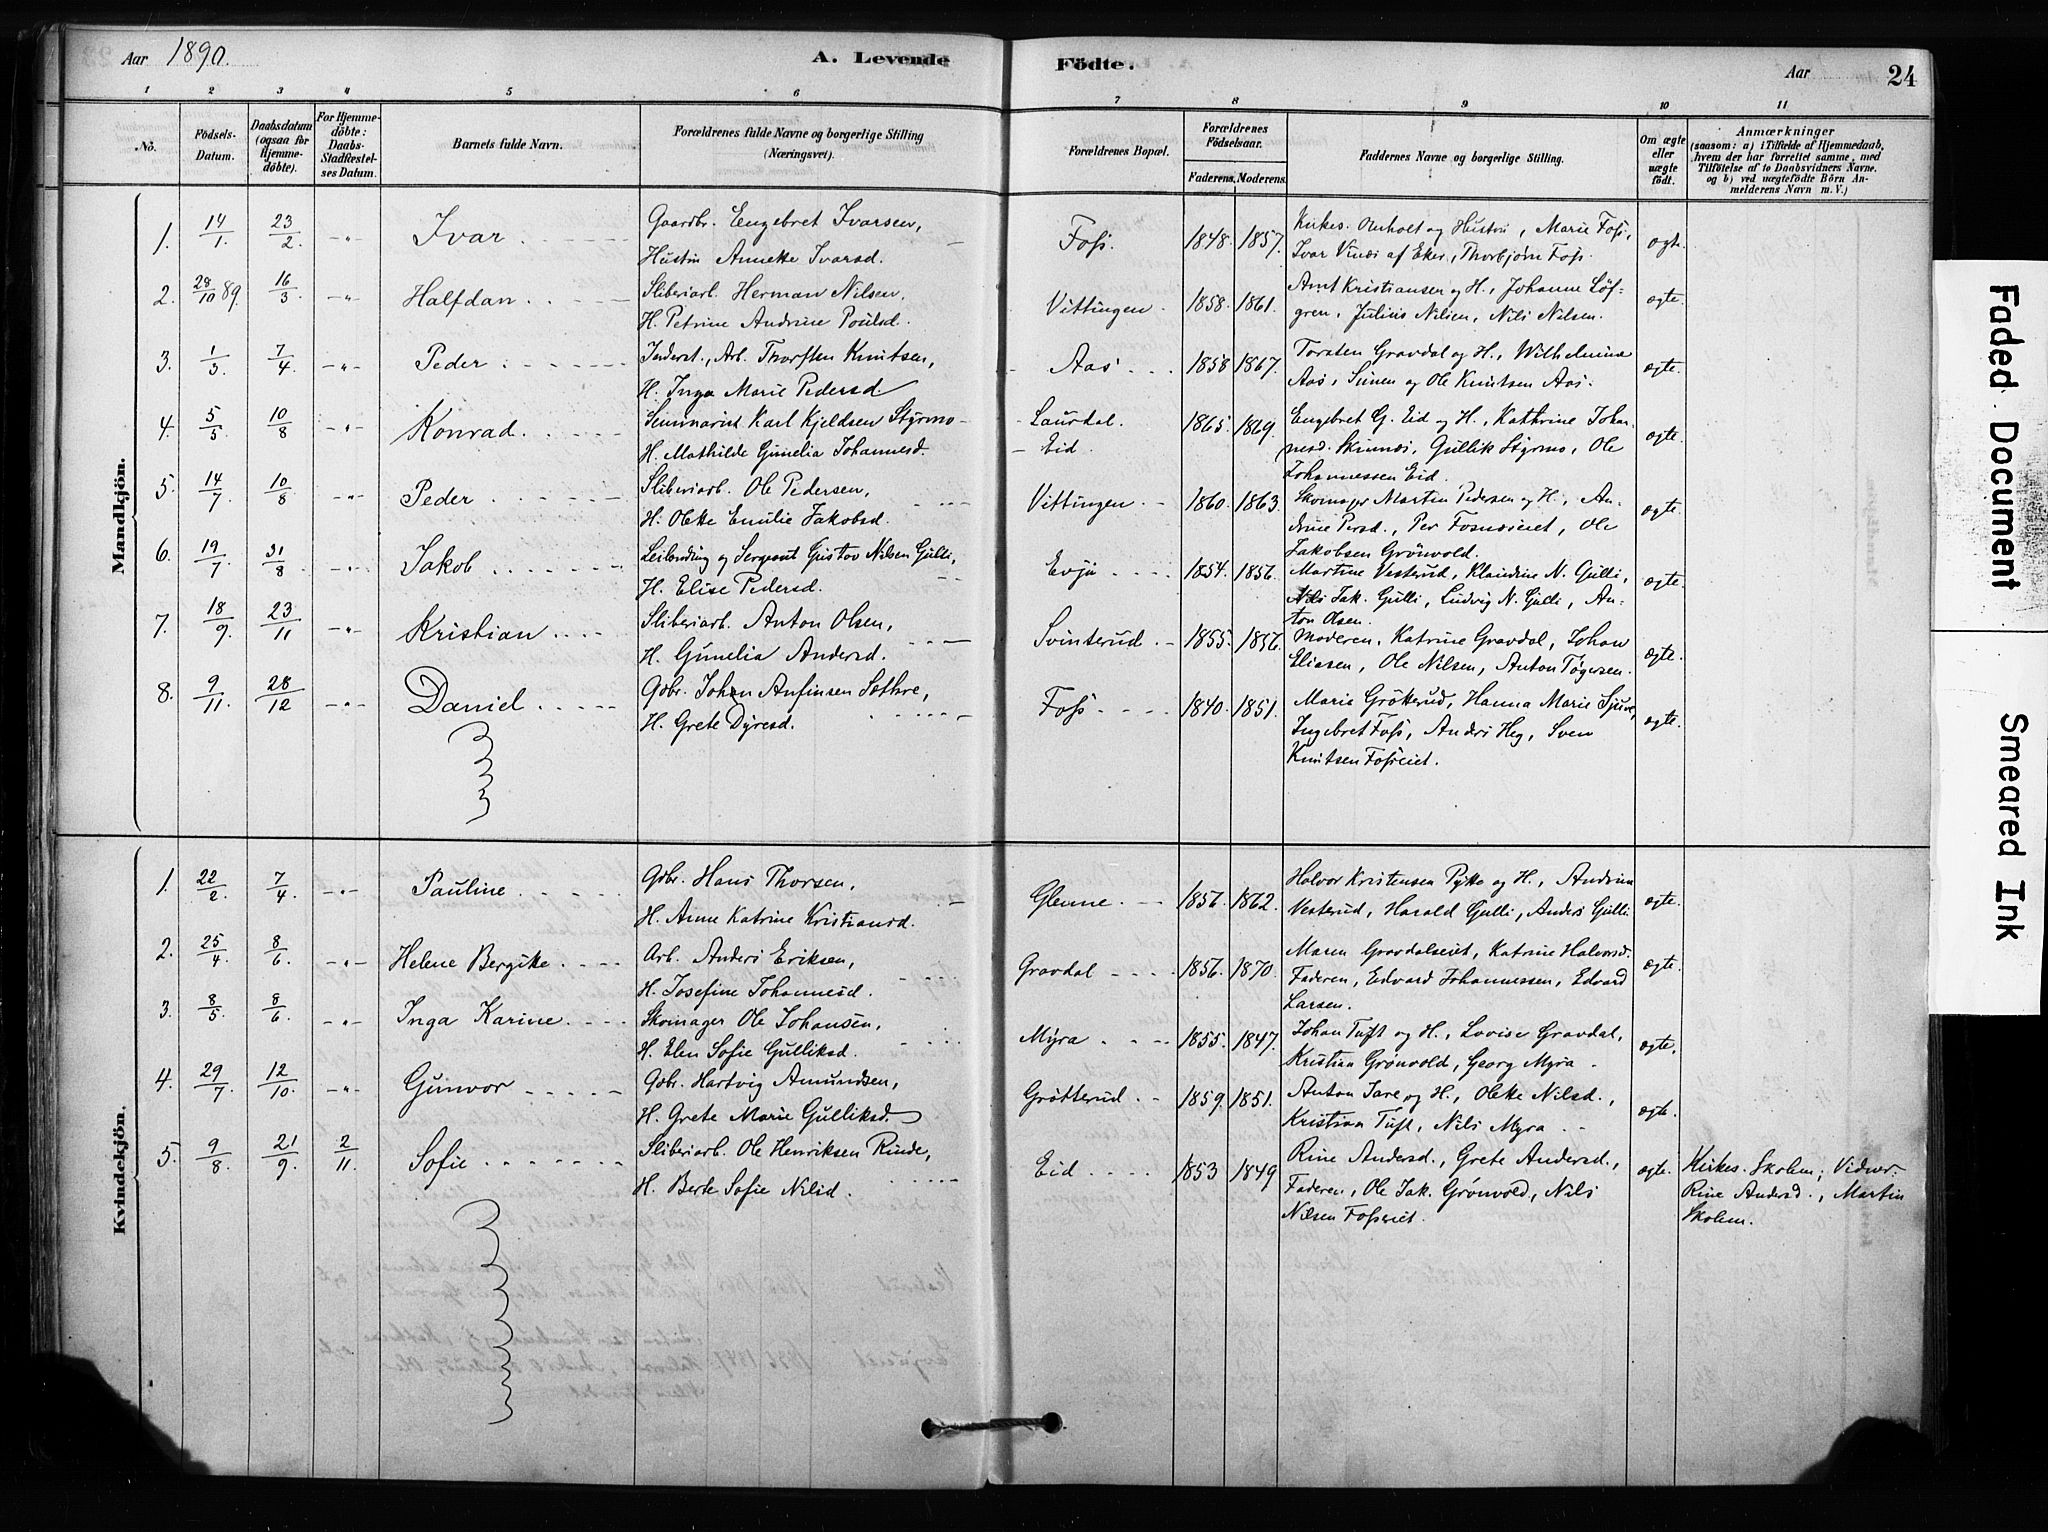 Aar 1890. A. Levende Födte. Aar 24
1 2 3 4 5 6 7 8 9 10 11
No.
Födsels-Datum.
Daabsdatum (ogsaa for Hjemmedöbte).
For Hjemmedöbte: Daabs-Stadfæstelses Datum.
Barnets fulde Navn.
Forældrenes fulde Navne og borgerlige Stilling (Næringsvei).
Forældrenes Bopæl.
Forældrenes Födselsaar. Faderens. Moderens.
Faddernes Navne og borgerlige Stilling.
Om ægte eller uægte födt.
Anmærkninger (saasom: a) i Tilfælde af Hjemmedaab, hvem der har forrettet samme, med Tilföielse af to Daabsvidners Navne. og b) ved uægtefödte Börn Anmelderens Navn m. V.)
Mandkjön.
1. 14/1. 23/2. -"- Ivar Gaardbr. Engebret Ivarsen, Foss. 1848. 1857. Kirkes. Anholt og Hustru, Marie Foss, ægt.
Hustru Annette Ivarsd. Ivar Vinæs af Eker, Thorbjørn Foss.
2. 28/10 89. 16/3. -"- Halfdan Sliberiarb. Herman Nilsen, Vittingen. 1858. 1861. Amt Kristiansen og H., Johanne Löf-
H. Petrine Andrine Poulsd. gren, Julius Nilsen, Nils Nilsen. ægte.
3. 1/3 7/4 -"- Peder Inderst., Arb. Thorsten Knutsen, Aas 1858 1867. Torsten Gravdal og H., Wilhelmine
H. Inga Marie Pedersd. Aas, Simen og Ole Knutsen Aas. ægte.
4. 5/5 10/8 -"- Konrad. Seminarist Karl Kjeldsen Styrmo Laurdal. 1865. 1869. Engebret G. Eid og H., Kathrine Johan-
H. Mathilde Gunelia Johannesd. Eid nesd. Skinnæs, Gullik Styrmo, Ole ægte.
Johannessen Eid.
5. 14/7 10/8 -"- Peder Sliberiarb. Ole Pedersen, Vittingen 1860. 1863. Skomager Martin Pedersen og H., An-
H. Olette Emilie Jakobsd. drine Persd., Per Fosnæseiet, Ole ægte.
Jakobsen Grönvold.
6. 19/7 31/8 -"- Jakob Leilending og Sergeant Gustav Nilsen Gulli, Evju 1854. 1856. Martine Vesterud, Klaudine N. Gulli, ægte.
H. Elise Pedersd. Nils Jak. Gulli, Ludvig N. Gulli, An-
ton Olsen.
7. 18/9. 23/11 -"- Kristian Sliberiarb. Anton Olsen, Svinterud 1855. 1856. Moderen, Katrine Gravdal, Johan
H. Gunelia Andersd. Eliasen, Ole Nilsen, Anton Tøgersen. ægte.
8. 9/11. 28/12 -"- Daniel Gdbr. Johan Anfinsen Sæthre, Foss 1840. 1851. Maria Grötterud, Hanna Marie Sjuve,
H. Grete Dyresd. Ingebret Foss, Anders Heg, Sven ægte.
Knutsen Fosseiet.
Kvindekjön.
1. 22/2. 7/4. -"- Pauline Gdbr. Hans Thorsen, Glenne. 1856. 1862. Halvor Kristensen Pytte og H., Andrine
H. Anne Katrine Kristiansd. Vesterud, Harald Gulli, Anders Gulli. ægte.
2. 25/4 8/6. -"- Helene Bergitte Arb. Anders Eriksen, Gravdal 1856. 1870. Maren Gravdalseiet, Katrine Halvorsd.
H. Josefine Johannesd. Faderen, Edvard Johannessen, Edvard ægte.
Larsen.
3. 8/5. 8/6. -"- Inga Karine. Skomager Ole Johansen, Myra 1855. 1847. Johan Tuft og H., Lovise Gravdal,
H. Elen Sofie Gulliksd. Kristian Grønvold, Georg Myra. ægte.
4. 29/7. 12/10. -"- Gunvor Gdbr. Hartvig Amundsen, Grötterud 1859. 1851. Anton Jare og H., Olette Nilsd.,
H. Grete Marie Gulliksd. Kristian Tuft, Nils Myra. ægte.
5. 9/8. 21/9. 2/11. Sofie Sliberiarb. Ole Henriksen Rinde, Eid 1853 1849 Rine Andersd., Grete Andersd., ægte. Kirkes. Skolem; Vidner:
H. Berte Sofie Nilsd. Faderen, Ole Jak. Grønvold, Nils Rine Andersd., Martin
Nilsen Fosseiet. Skolem.
Faded Document
Smeared Ink